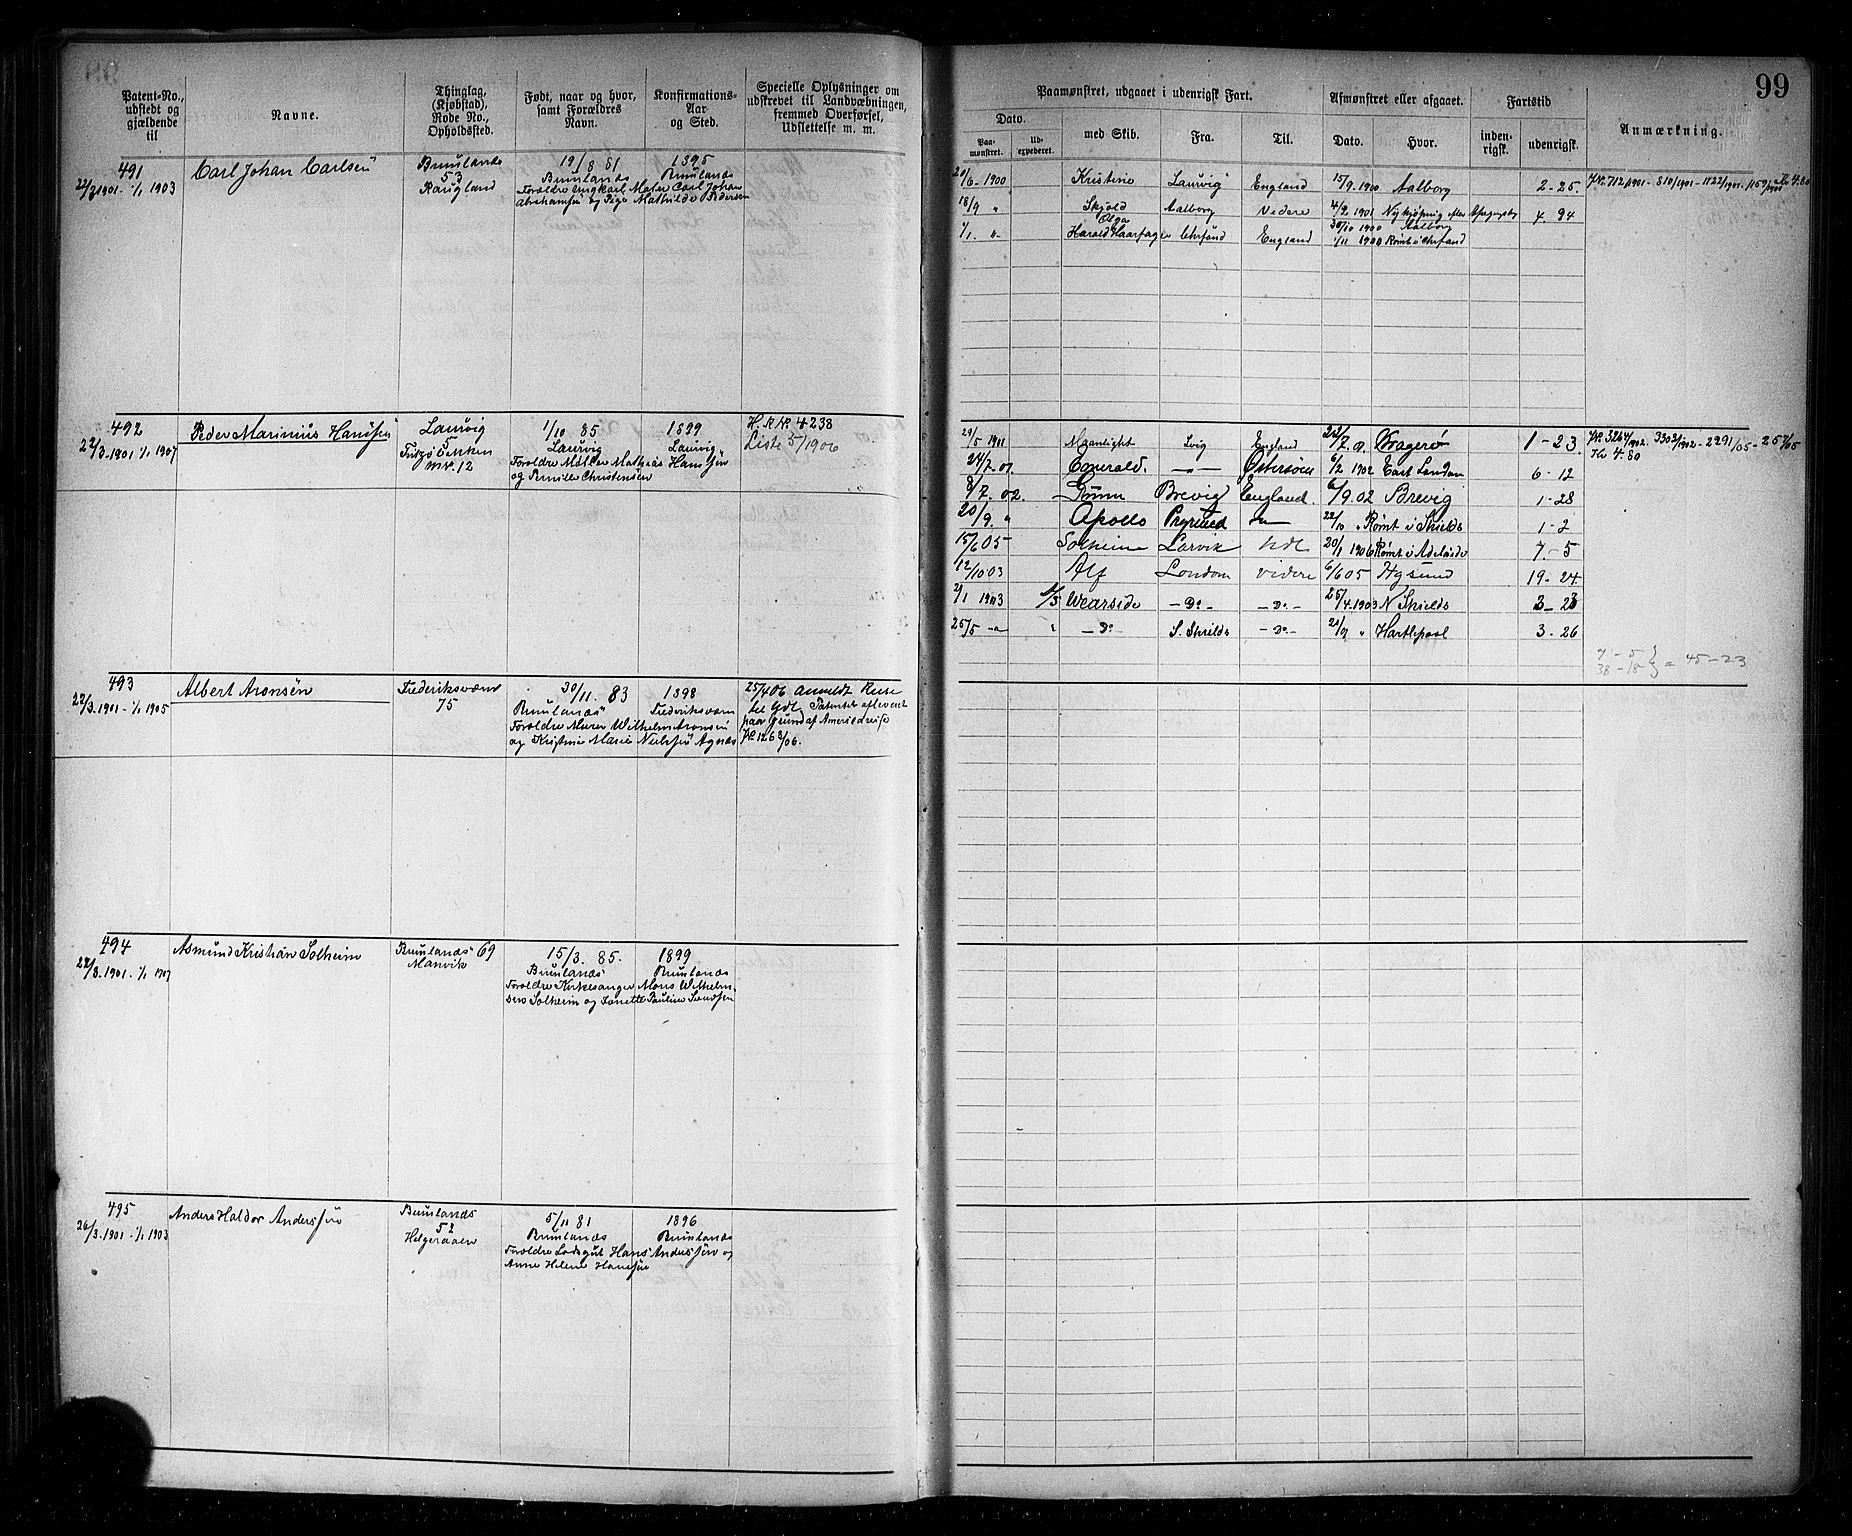 99
Patent-No., udstedt og gjældende til
Navne.
Thinglag, (Kjøbstad), Rode No., Opholdssted.
Født, naar og hvor, samt Forældres Navn.
Konfirmations-Aar og Sted.
Specielle Oplysninger om udskrevet til Landvæbningen, fremmed Overførsel, Udslettelse m. m.
Paamønstret, udgaaet i udenrigsk Fart.
Dato.
Paa-mønstret.
Ud-expederet.
med Skib.
Fra.
Til.
Afmønstret eller afgaaet.
Dato.
Hvor.
Fartstid
inden-rigsk.
udenrigsk.
Anmærkning.
491
22/3 1901 - 1/1 1903
Carl Johan Carlsen
Brunlanes
53
Raugland
19/8 81
Brunlanes
1895
Brunlanes
Forældre Ungkarl Mater Carl Johan
Abrahamsen og Pige Mathilde Pedersen
20/6 - 1900 Kristine Laurvig England 15/9 1900 Aalborg 2 - 25
18/9 " Skjold Aalborg Videre 4/2 1901 Nykjøbing
Olga 30/10 1900 Aalborg
Harald Haarfager Chrsand England 1/11 1900 Rømt i Chrsand
492
22/3 1901 1/1 1907
Peder Marinius Hansen
Laurvig
5
Fritzø
No. 12
1/10 85
Laurvig
1899
Laurvig
Forældre Møller Mathias Hanssen
og Pernille Christensen
H. R. No 4238
Liste 5/1906
29/5 1901 Moonlight Lvig England 23/7. 01. Kragerø 1 - 23
24/7. 01 Emerald. -"- Østersøen 6/2 1902 East London 6 - 12
8/7. 02. Gunn Brevig England. 6/9. 02 Brevig 1 - 28
20/9. " Apollo Prgrund 22/10 " Rømt i Shields 1 - 2
15/6 05 Solheim Larvik Udl 20/1 1906 Rømt i Adelaide 7 - 5
12/10 03 Alf London videre 6/6 05 19 - 24
2/1 1903 Wearside - Do - - Do - 25/4. 1903 N Shields 3 - 23
25/5 - " - Do S. Shields - Do - " Hartlepool 3 - 26
Kr 4. 80
7 - 5
38 - 18 } = 45 - 23
493
22/3. 1901 - 1/1 1905
Albert Aronsen
Frederiksværn
75
30/11. 83
Brunlanes
1898
Frederiksværn
Forældre Murer Wilhelm Aronsen
og Kristine Marie Nielsen Agnæs
25/4 06 anmeldt Reise
til Udl. Patentet afleveret
paa Grund af Amerikareise
494
22/3. 1901 - 1/1 1907
Asmund Kristian Solheim
Brunlanes 69
Manvik
15/3. 85.
Brunlanes
1899
Brunlanes
Forældre Kirkesanger Mons Wilhelm-
sen Solheim og Janette Pauline Svendsen
495
26/3. 1901 - 1/1 1903
Anders Haldor Anderssen
Brunlanes
52
Helgeraaen
5/11 81
Brunlanes
1896
Brunlanes
Forældre Lodsgut Hans Anderssen og
Anne Helene Hanssen